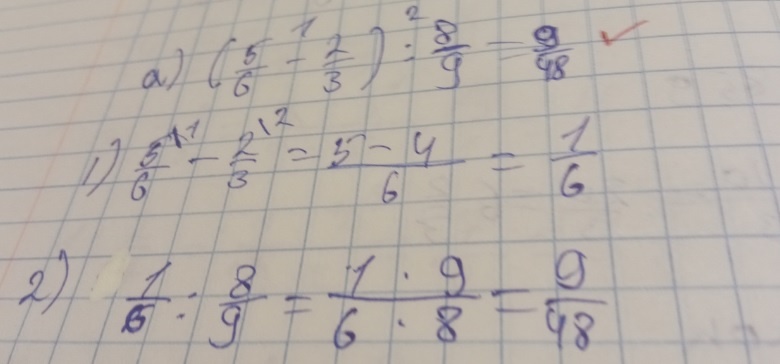 а) (5/6 - 2/3) : 8/9 = 9/48
1) 5/6 \1 - 2/3 \2 = 5-4/6 = 1/6
2) 1/6 : 8/9 = 1·9/6·8 = 9/48